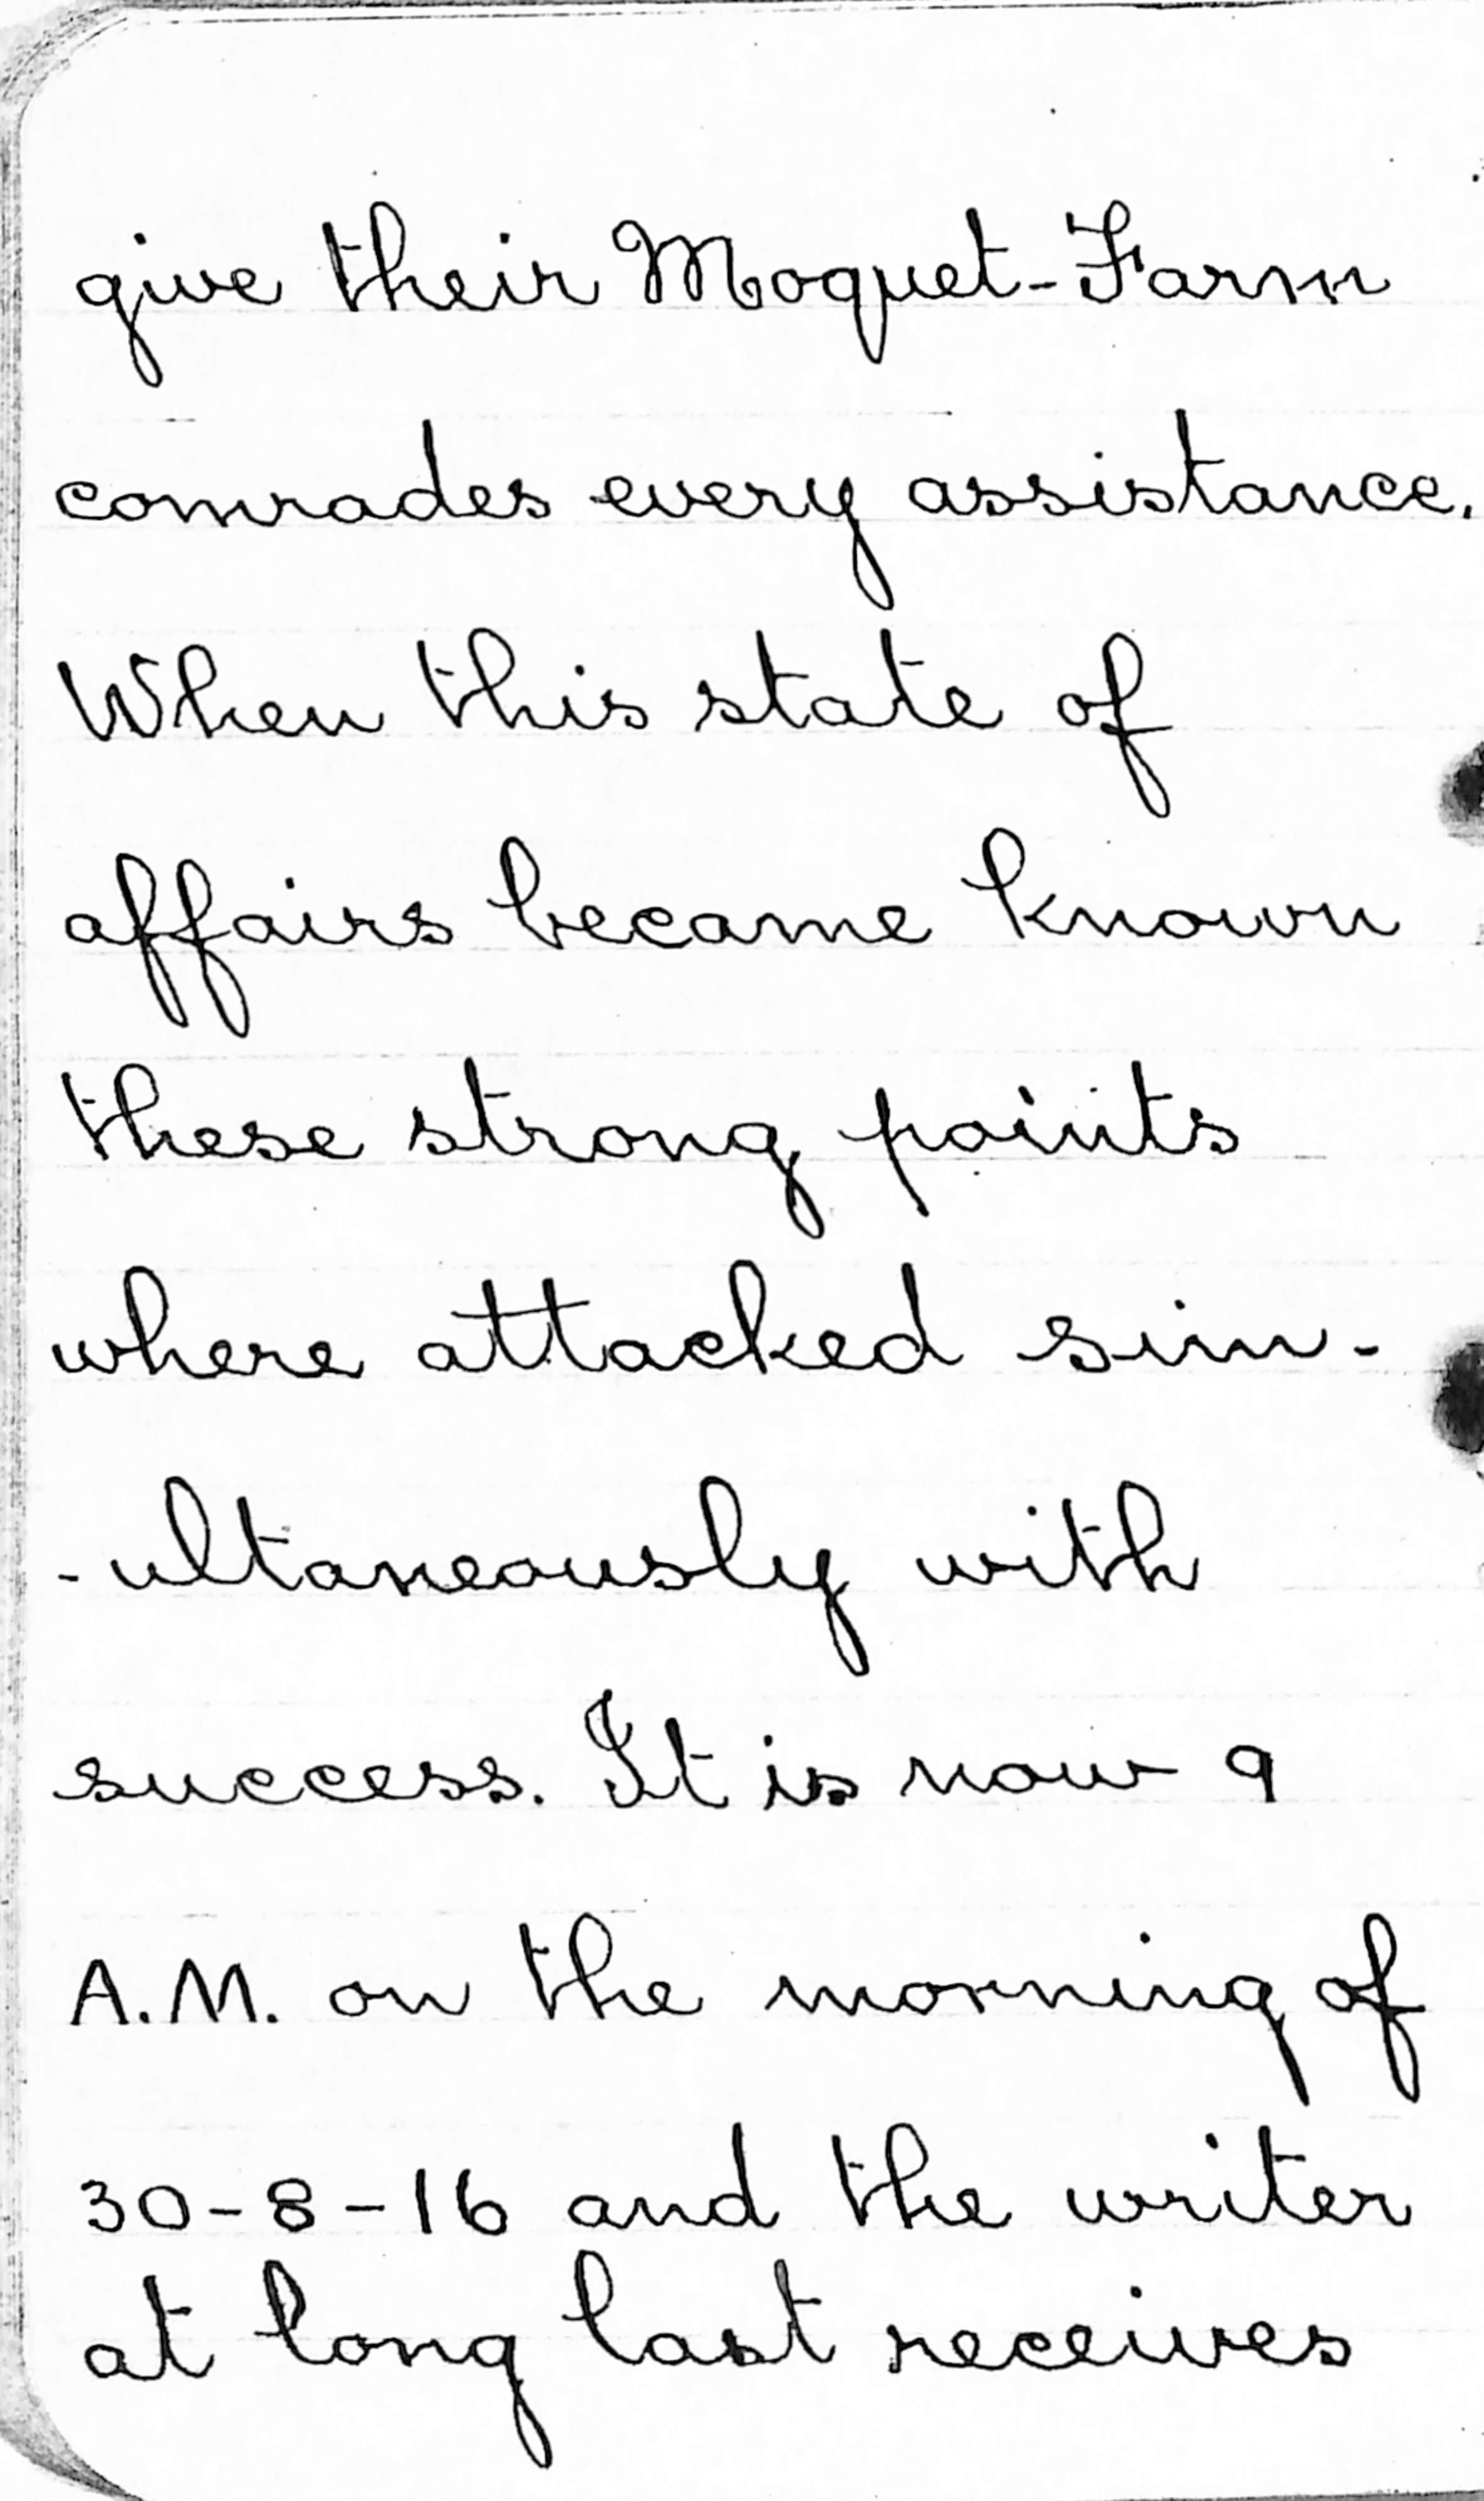 give their Moquet-Farm
comrades every assistance.
When this state of
affairs became known
these strong points
where attacked sim-
-ultaneously with
success. It is now 9
A.M. on the morning of
30-8-16 and the writer
at long last receives